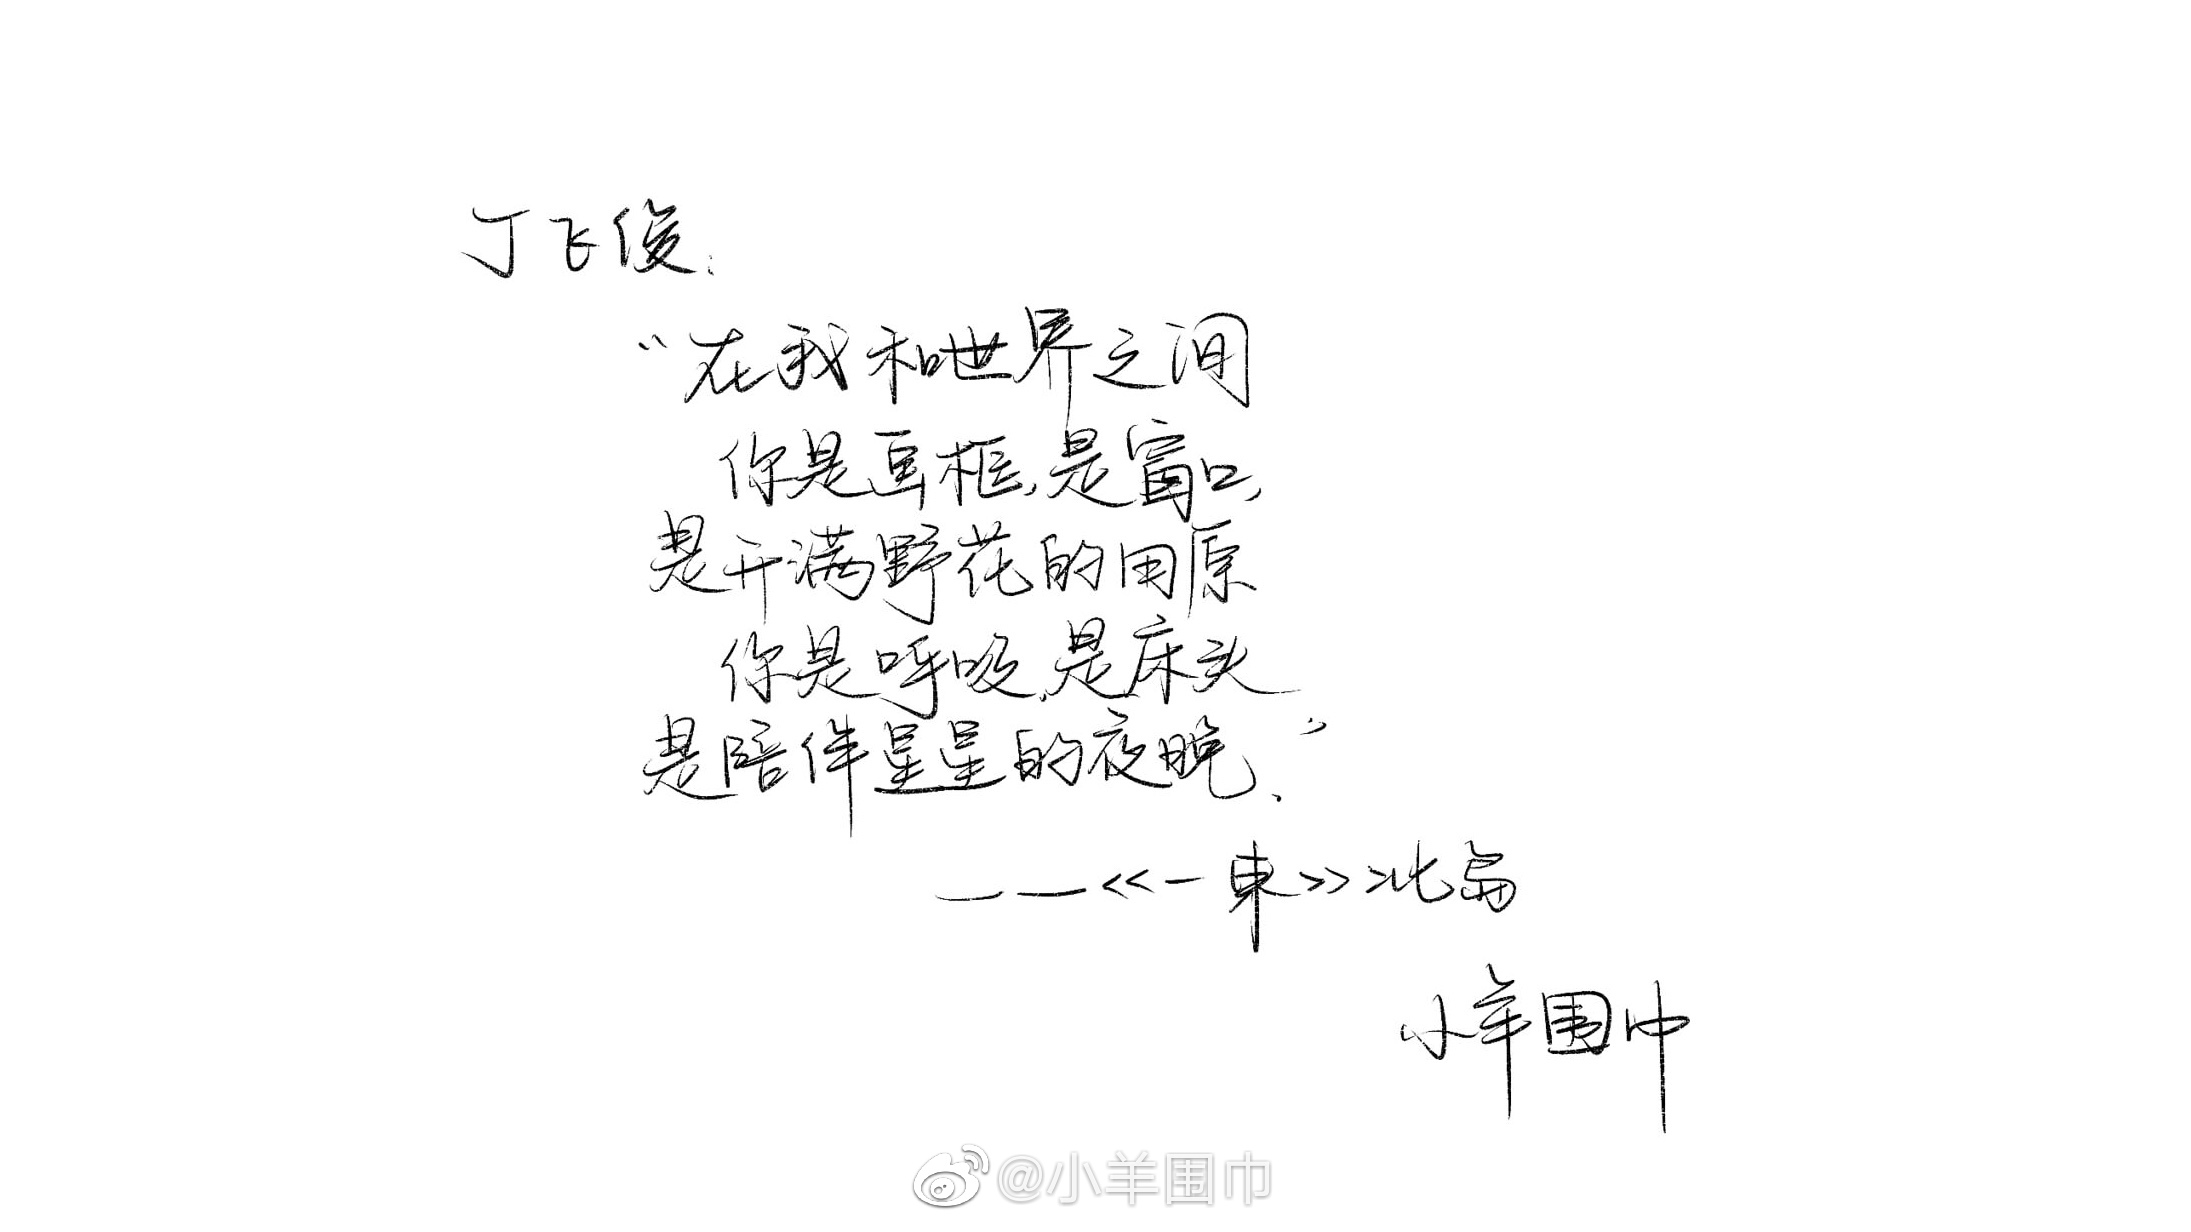 丁飞俊:
“在我和世界之间
你是画框,是窗口,
是开满野花的田原
你是呼吸,是床头
是陪伴星星的夜晚.”
——<<一束>>北岛
小羊围巾
@小羊围巾